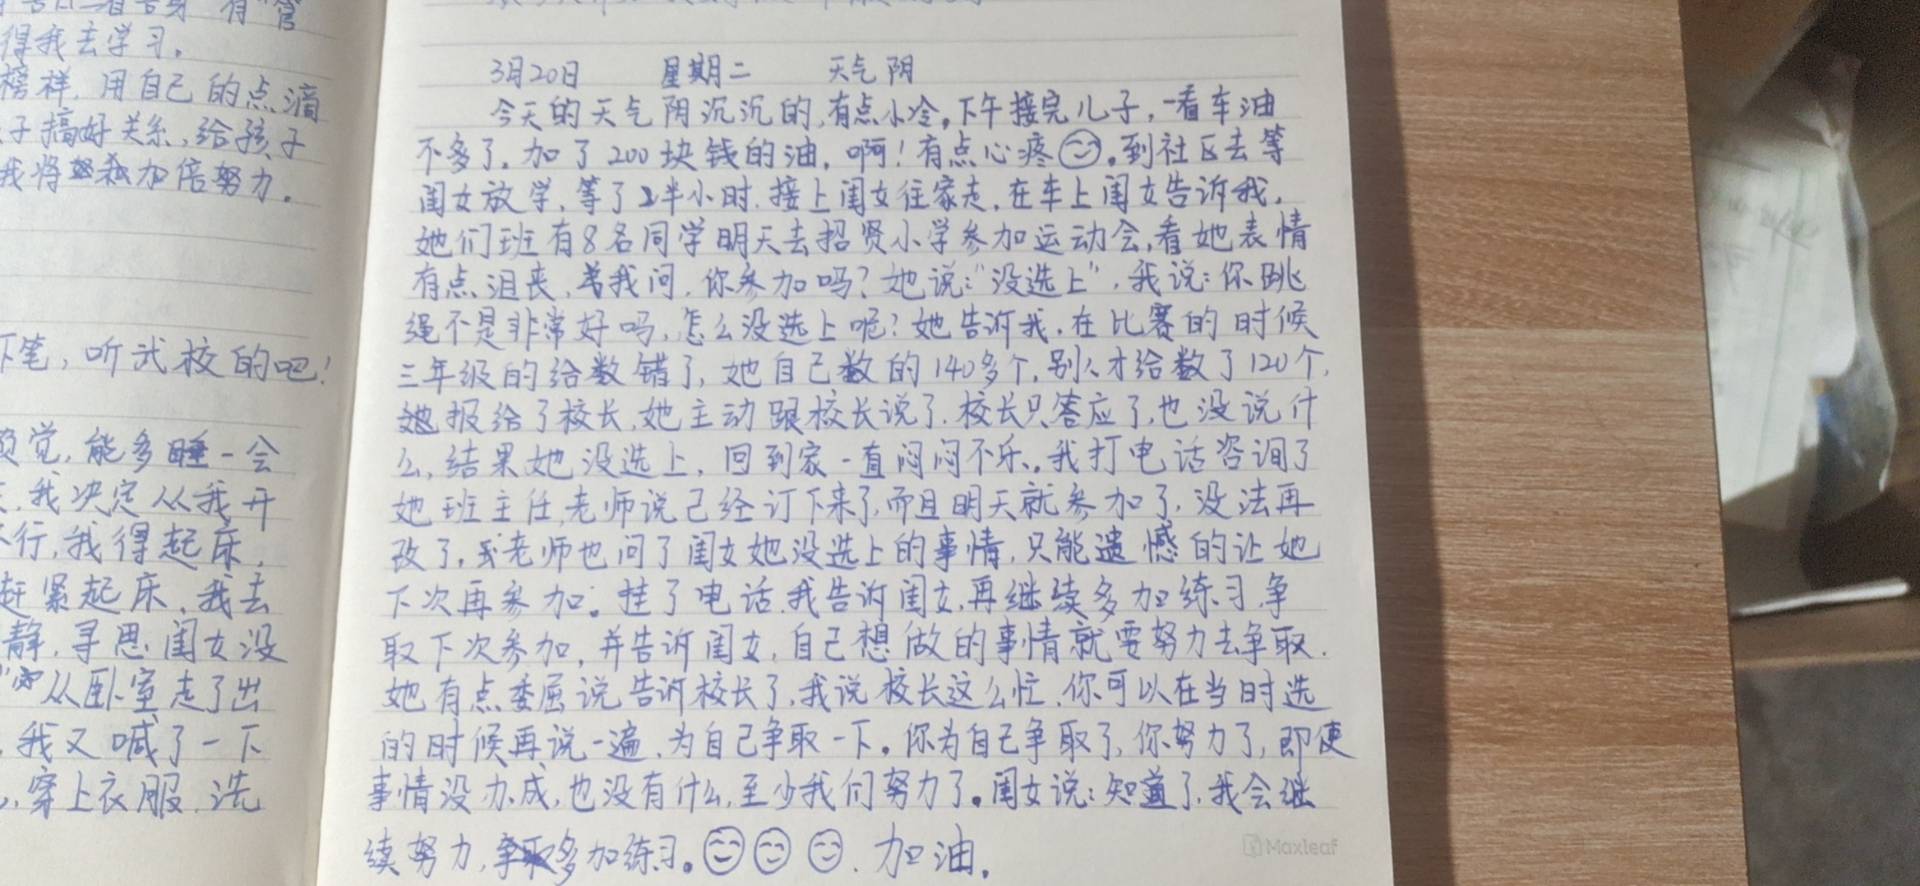 得我去学习。
榜样，用自己的点滴
子搞好关系，给孩子
我将加倍努力。
下笔，听武校的吧！
觉，能多睡一会
我决定从我开
行，我得起床，
赶紧起床，我去
静，寻思闺女没
从卧室走了出
，我又喊了一下
穿上衣服，洗
3月20日 星期二 天气 阴
今天的天气阴沉沉的，有点小冷。下午接完儿子，一看车油
不多了。加了200块钱的油，啊！有点心疼😊。到社区去等
闺女放学，等了半小时，接上闺女往家走，在车上闺女告诉我，
她们班有8名同学明天去招贤小学参加运动会，看她表情
有点沮丧，我问，你参加吗？她说："没选上"，我说：你跳
绳不是非常好吗，怎么没选上呢？她告诉我，在比赛的时候
三年级的给数错了，她自己数的140多个，别人才给数了120个，
她报给了校长，她主动跟校长说了，校长只答应了，也没说什
么，结果她没选上，回到家一直闷闷不乐。我打电话咨询了
她班主任，老师说已经订下来了，而且明天就参加了，没法再
改了，老师也问了闺女她没选上的事情，只能遗憾的让她
下次再参加。挂了电话，我告诉闺女，再继续多加练习，争
取下次参加，并告诉闺女，自己想做的事情就要努力去争取。
她有点委屈说告诉校长了，我说校长这么忙，你可以在当时选
的时候再说一遍，为自己争取一下。你为自己争取了，你努力了，即使
事情没办成，也没有什么，至少我们努力了。闺女说：知道了，我会继
续努力，争取多加练习。😊😊😊，加油。
Maxleaf